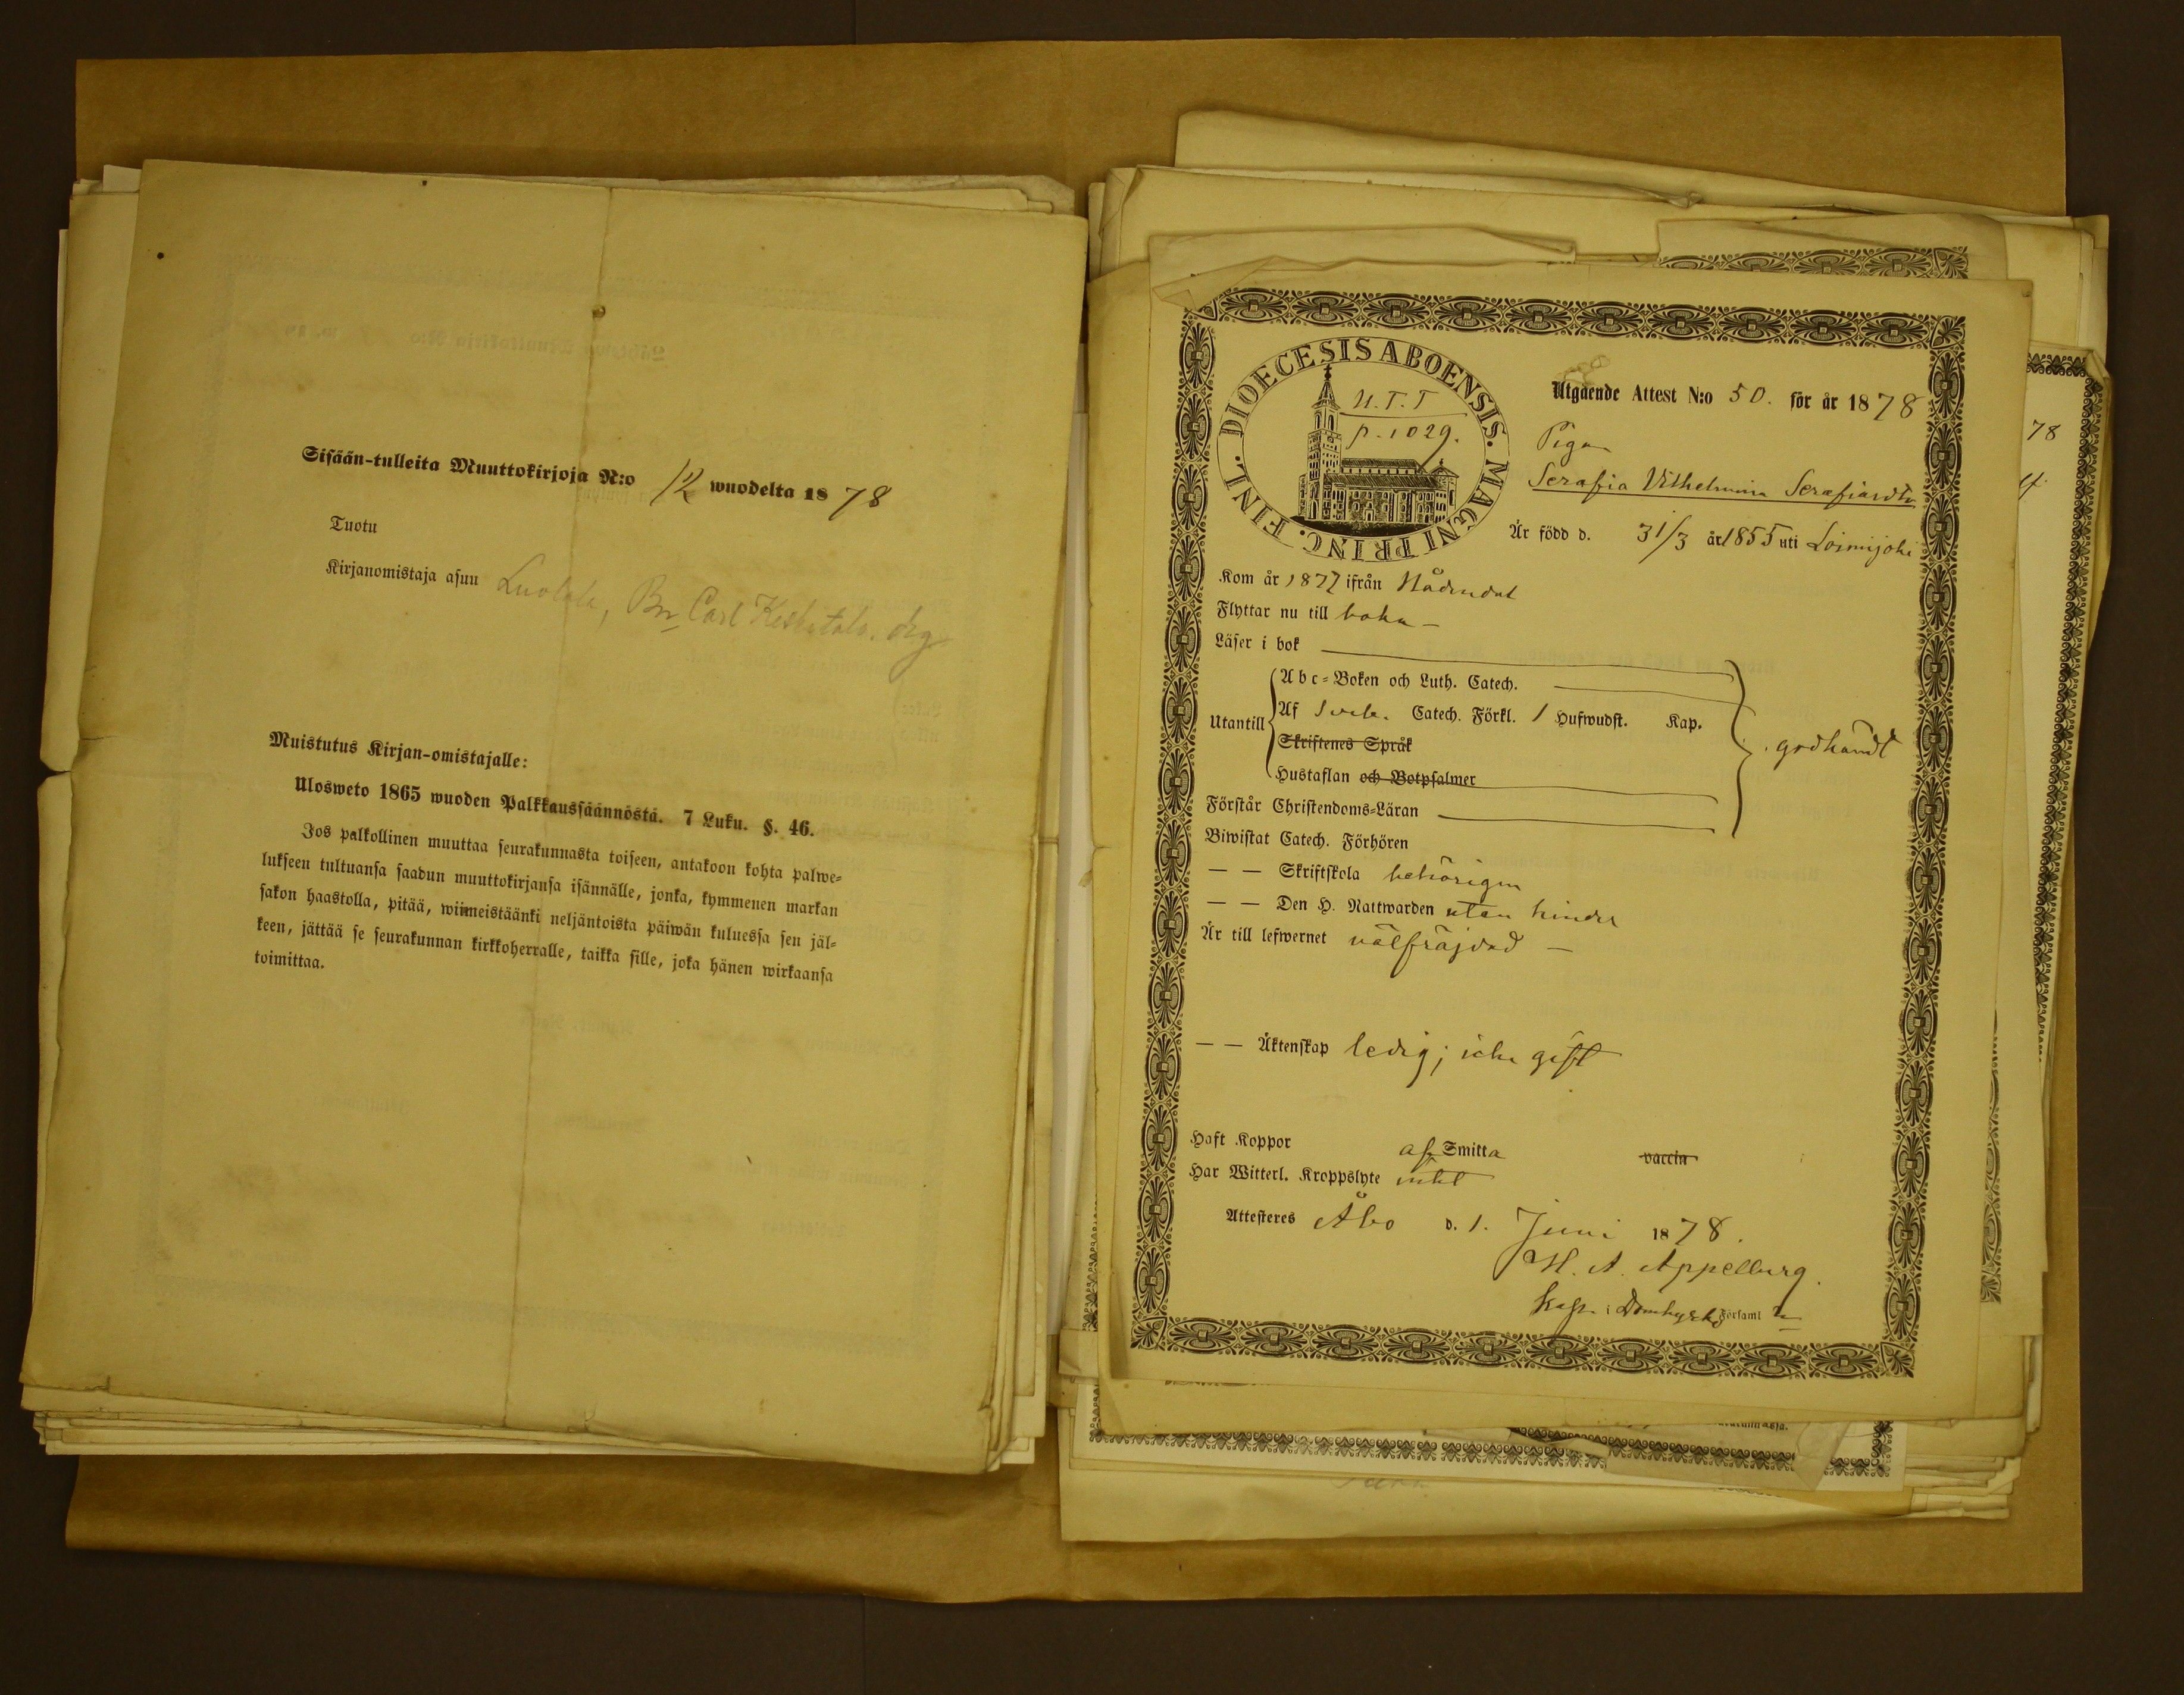 Sisään-tulleita Muuttokirjoja N:o 12 wuodelta 1878
Tuotu
Kirjanomistaja asuu Luolala, Bn Carl Keskitalo. drg
Muistutus Kirjan-omistajalle:
Ulosweto 1865 wuoden Palkkaussäännöstä. 7 Luku. §. 46.
Jos palkollinen muuttaa seurakunnasta toiseen, antakoon kohta palwe=
lukseen tultuansa saadun muuttokirjansa isännälle, jonka, kymmenen markan
sakon haastolla, pitää, wiimeistäänki neljäntoista päiwän kuluessa sen jäl=
keen, jättää se seurakunnan kirkkoherralle, taikka sille, joka hänen wirkaansa
toimittaa.
DIOECESIS ABOENSIS. MAGNI PRINC. FINL.
U.T.T
p. 1029.
Utgående Attest N:o 50. för år 1878
Pigan
Serafia Vilhelmina Serafiasdtr
Är född d. 31/3 år 1855 uti Loimijoki
Kom år 1877 ifrån Nådendal
Flyttar nu till baka –
Läser i bok
Abc=Boken och Luth. Catech.
Utantill
Af Sveb. Catech. Förkl. 1 Hufwudst. Kap.
Skriftenes Språk
Hustaflan och Botpsalmer
godkändt
Förstår Christendoms=Läran
Biwistat Catech. Förhören
— — Skriftskola behörigen
— — Den H. Nattwarden utan hinder
Är till lefwernet välfräjdad –
— — Äktenskap ledig; icke gift
Haft Koppor af Smitta vaccin
Har Witterl. Kroppslyte intet
Attesteres Åbo d. 1. Juni 1878.
H. A. Appelberg.
Kapn i Domkyrko Församl n
78